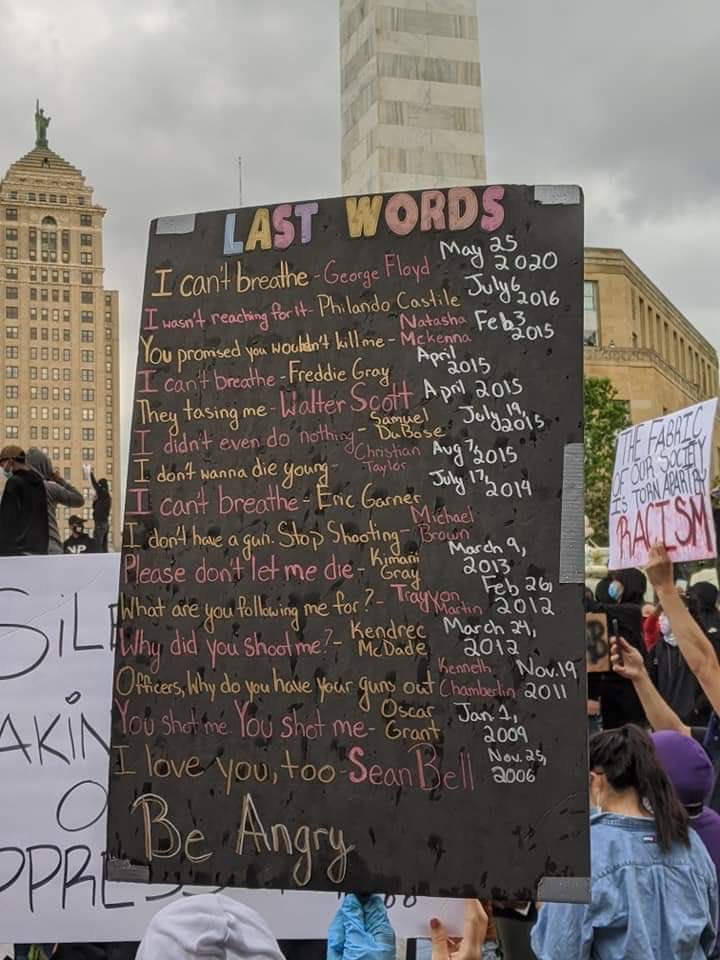 LAST WORDS
I can't breathe - George Floyd May 25 2020
I wasn't reaching for it - Philando Castile July 6 2016
You promised you wouldn't kill me - Natasha Mckenna Feb 3 2015
I can't breathe - Freddie Gray April 2015
They tasing me - Walter Scott April 2015
I didn't even do nothing - Samuel DuBose July 19, 2015
I don't wanna die young - Christian Taylor Aug 7, 2015
I can't breathe - Eric Garner July 17, 2014
I don't have a gun. Stop Shooting - Michael Brown
Please don't let me die - Kimani Gray March 9, 2013
What are you following me for? - Trayvon Martin Feb 26, 2012
Why did you shoot me? - Kendrec McDade March 24, 2012
Officers, Why do you have your guns out Kenneth Chamberlin Nov. 19 2011
You shot me. You shot me - Oscar Grant Jan 1, 2009
I love you, too - Sean Bell Nov. 25, 2006
Be Angry
THE FABRIC
OF OUR SOCIETY
IS TORN APART BY
RACISM
SiLE
AKiN
O
PPRES